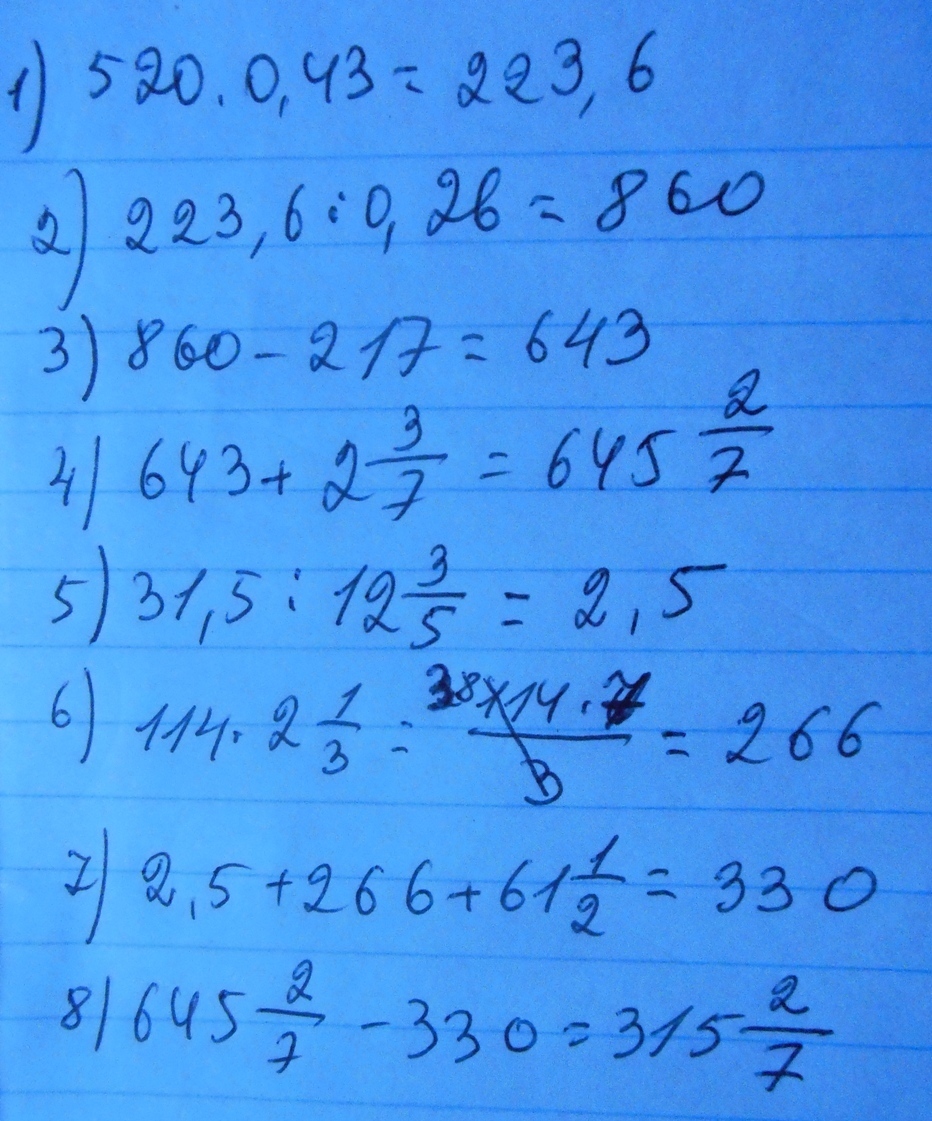 1) 520 . 0,43 = 223,6
2) 223,6 : 0,26 = 860
3) 860 - 217 = 643
4) 643 + 2 3/7 = 645 2/7
5) 31,5 : 12 3/5 = 2,5
6) 114 . 2 1/3 = 38 114 . 7 / 3 = 266
7) 2,5 + 266 + 61 1/2 = 330
8) 645 2/7 - 330 = 315 2/7